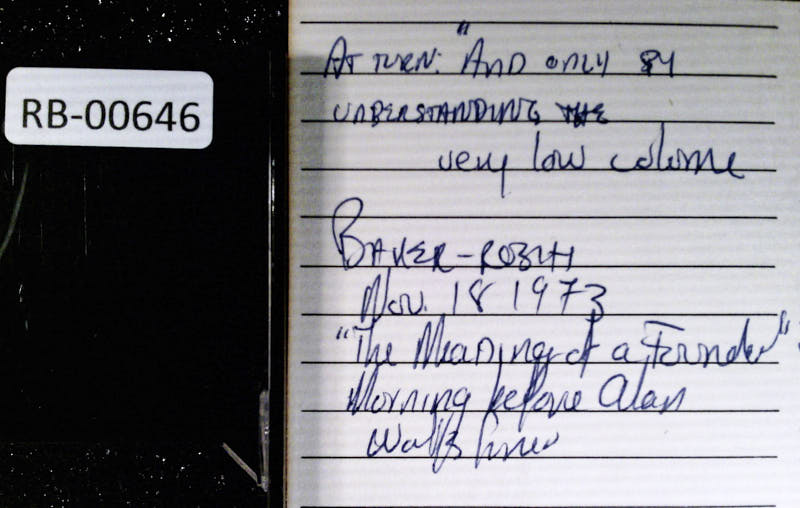 RB-00646
AT TURN: "AND ONLY BY
UNDERSTANDING THE
very low volume
BAKER-ROSHI
Nov. 18 1973
"The Meaning of a Founder"
Morning before Alan
Watts